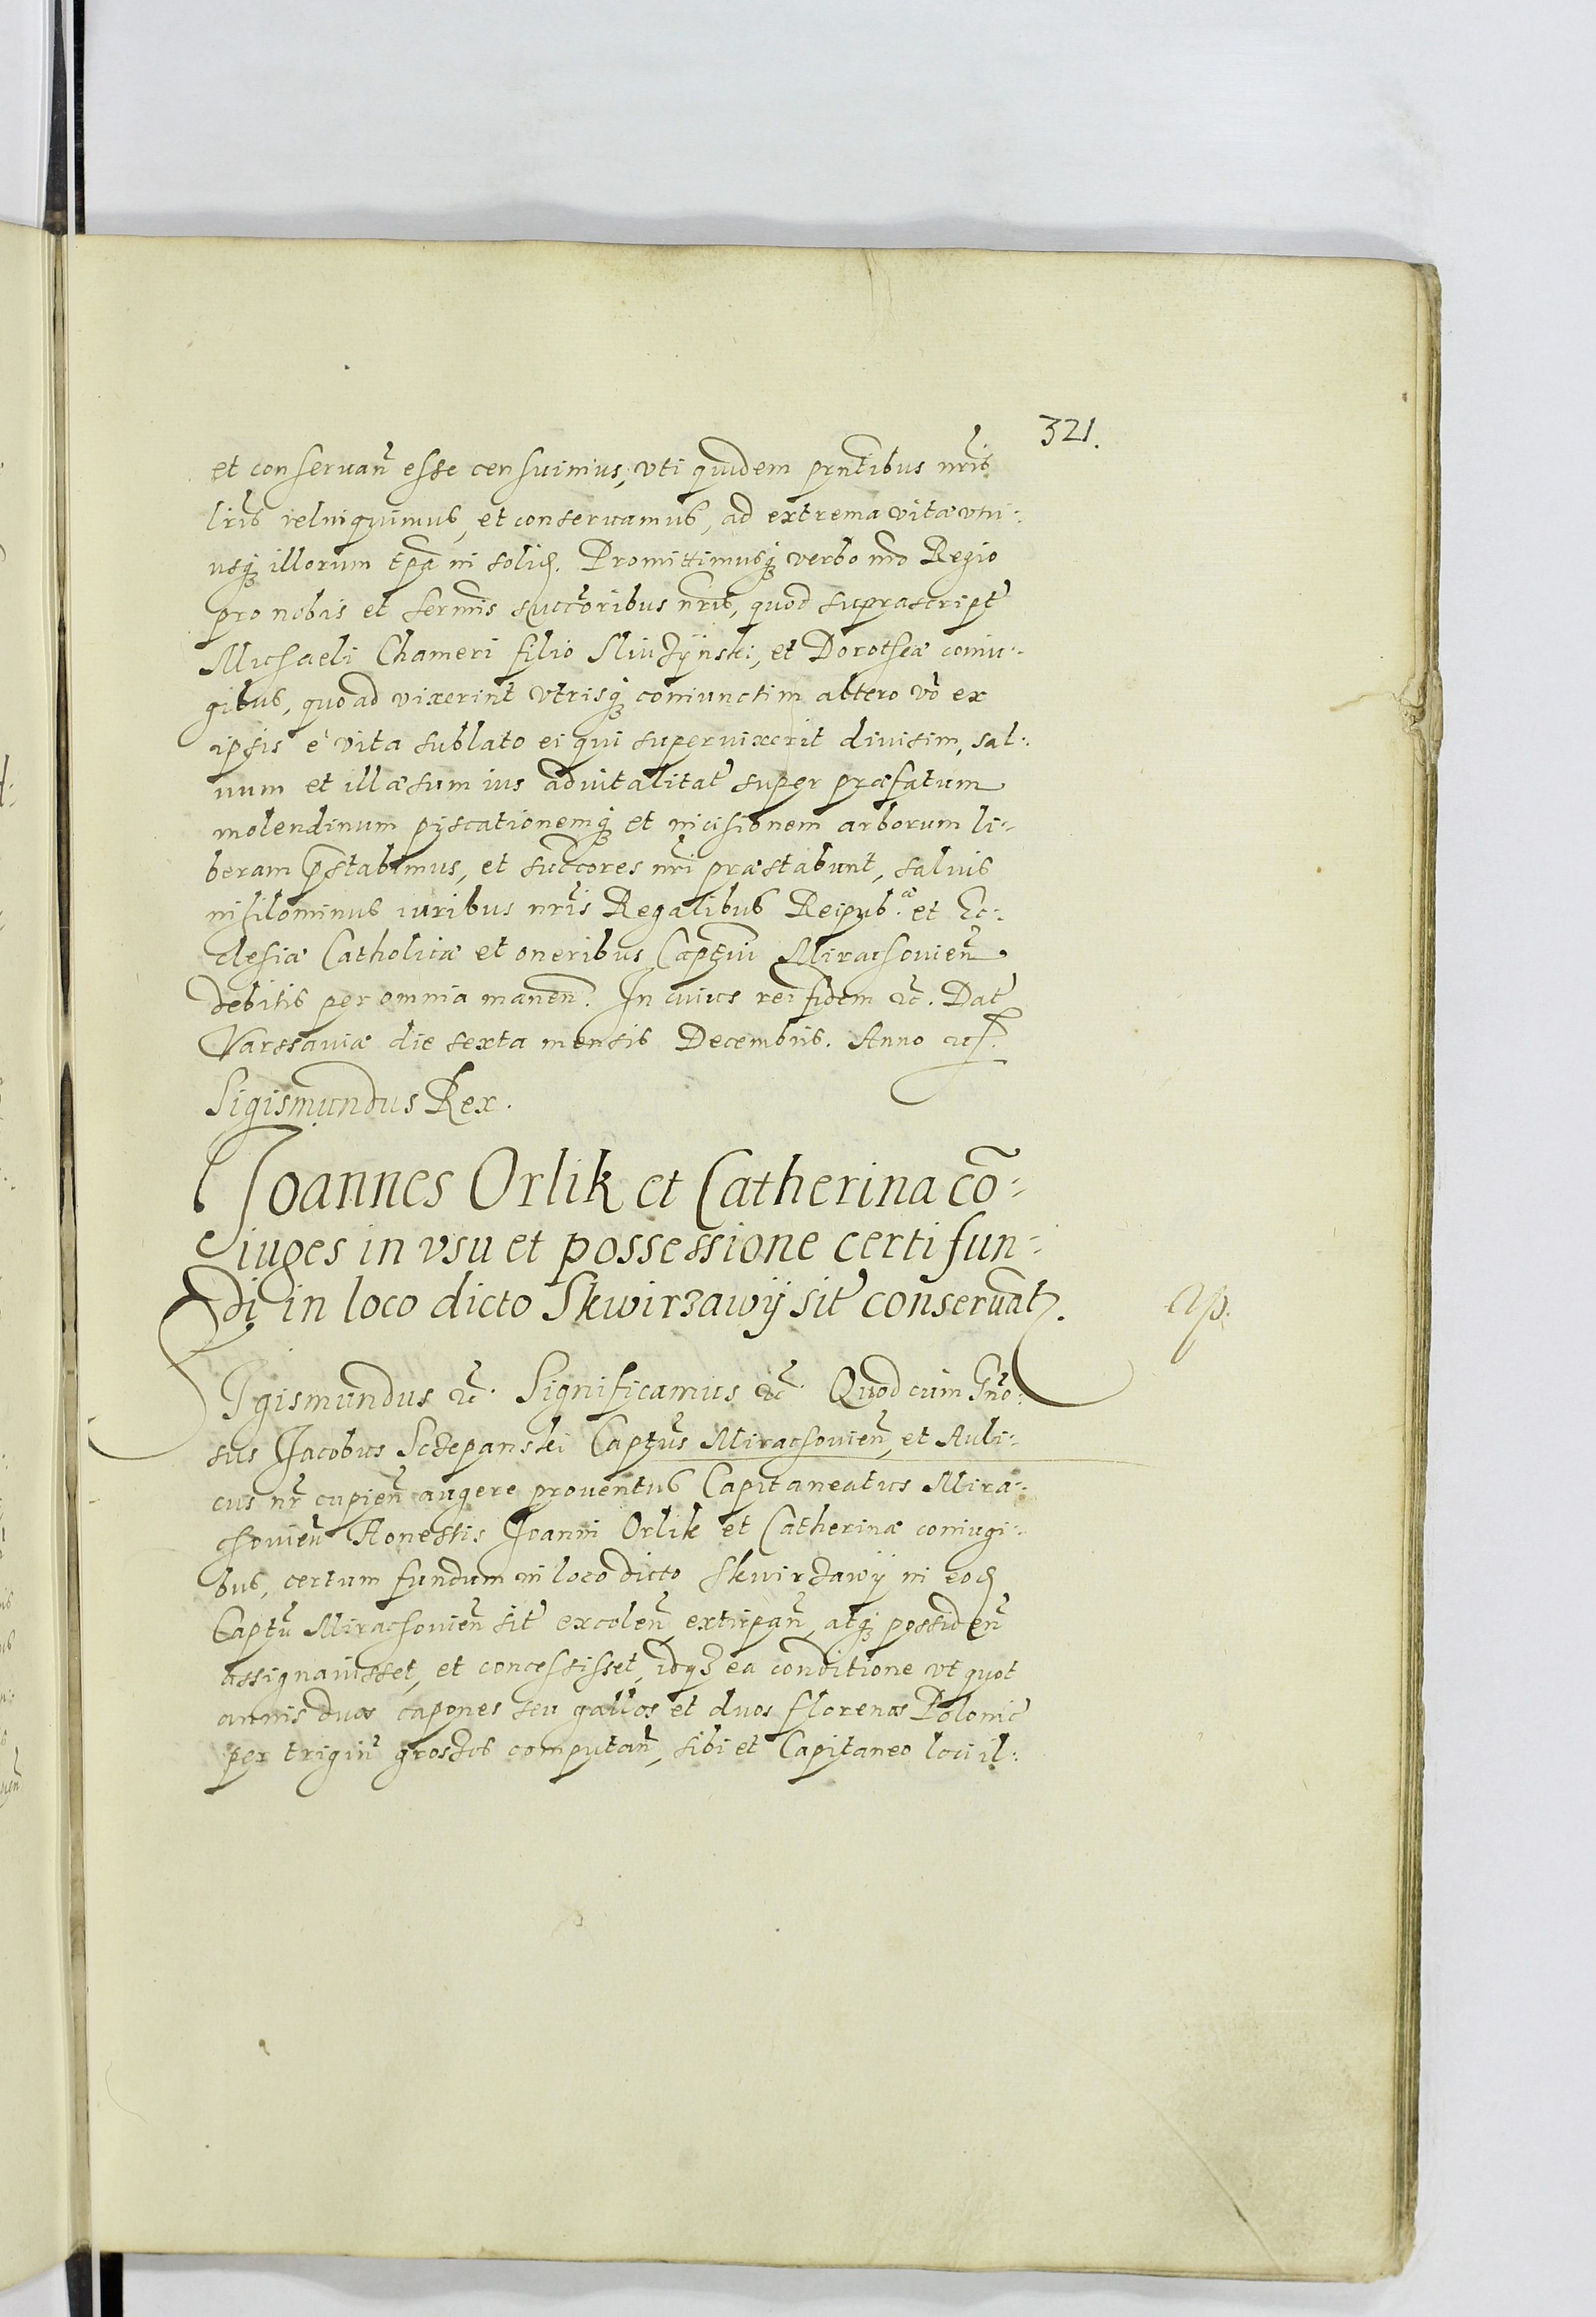 321.
et conservan̄ esse censuimus, vti quidem pn̄tibus nr̄is
lr̄is relinquimus, et conservamus, ad extrema vitæ vtri-
usq; illorum tp̄a in solid. Promittimusq; verbo nr̄o Regio
pro nobis et Serm̄is Succ̄oribus nr̄is, quod suprascript̄
Michaeli Chameri filio Sliwzÿnski, et Dorotheæ coniu-
gibus, quoad vixerint vtrisq; coniunctim altero vō ex
ipsis è vita sublato ei qui supervixerit divisim, sal-
uum et illæsum ius aduitalitat̄ super præfatum
molendinum piscationemq; et incisionem arborum li-
beram p̄stabimus, et succ̄ores nr̄i præstabunt, saluis
nihilominus iuribus nr̄is Regalibus Reipub.æ et Ec-
clesiæ Catholicæ et oneribus Capt̄ui Mirachouien̄
debitis per omnia manen̄. In cuius rei fidem etc̄. Dat̄
Varssauiæ die sexta mensis Decembris. Anno ut s.
Sigismundus Rex.
Joannes Orlik et Catherina cō-
iuges in vsu et possessione certi fun-
di in loco dicto Skwirzawÿ sit̄ conseruat̄.
ap.
Sigismundus etc̄. Significamus etc̄. Quod cum Gn̄o-
sus Jacobus Sczepanski Capt̄us Mirachouien̄, et Auli-
cus nr̄ cupien̄ augere prouentus Capitaneatus Mira-
chouien̄ Honestis Joanni Orlik et Catherinæ coniugi-
bus, certum fundum in loco dicto Skwirzawÿ in eod
Capt̄u Mirachouien̄ sit̄ excolen̄ extirpan̄, atq; possiden̄
assignauisset, et concessisset, idq; ea conditione vt quot
annis duos capones seu gallos et duos florenos Polonic̄
per trigin̄ grossos computan̄, sibi et Capitaneo loci il-